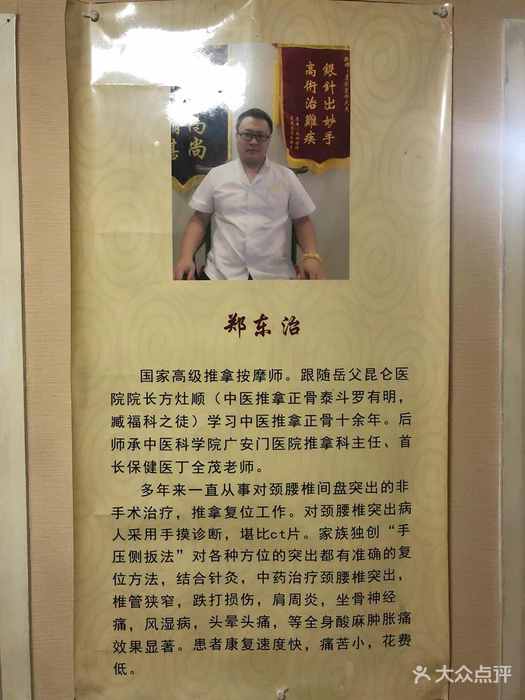 銀針出妙手
高術治難疾
尚尚
郑东治
国家高级推拿按摩师。跟随岳父昆仑医
院院长方灶顺（中医推拿正骨泰斗罗有明，
臧福科之徒）学习中医推拿正骨十余年。后
师承中医科学院广安门医院推拿科主任、首
长保健医丁全茂老师。
多年来一直从事对颈腰椎间盘突出的非
手术治疗，推拿复位工作。对颈腰椎突出病
人采用手摸诊断，堪比ct片。家族独创“手
压侧扳法”对各种方位的突出都有准确的复
位方法，结合针灸，中药治疗颈腰椎突出，
椎管狭窄，跌打损伤，肩周炎，坐骨神经
痛，风湿病，头晕头痛，等全身酸麻肿胀痛
效果显著。患者康复速度快，痛苦小，花费
低。
大众点评